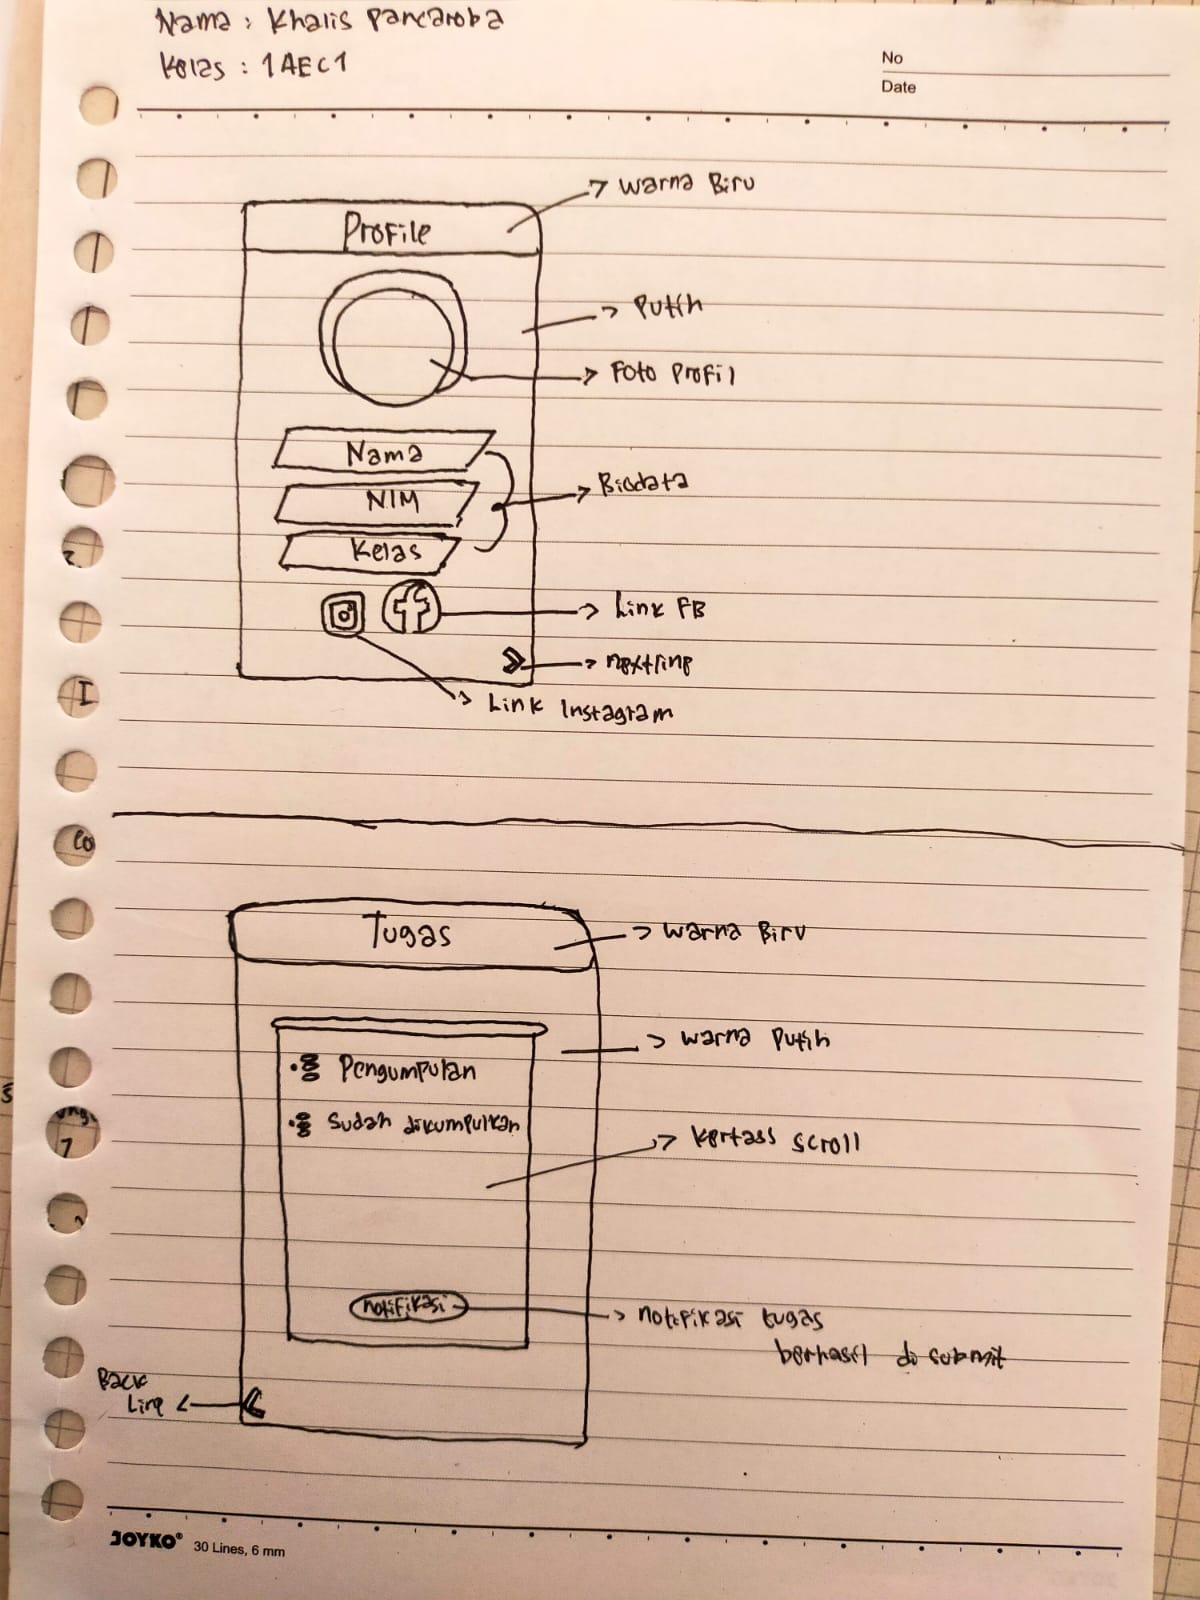 Nama : Khalis Pancaroba
Kelas : 1AEC1
No
Date
Warna Biru
Profile
Putih
Foto Profil
Nama
NIM
Biodata
Kelas
Link FB
nextline
Link Instagram
Tugas
Warna Biru
Warna Putih
Pengumpulan
Sudah dikumpulkan
Kertass scroll
notifikasi
notifikasi tugas
berhasil di submit
Back
Line
JOYKO® 30 Lines, 6 mm